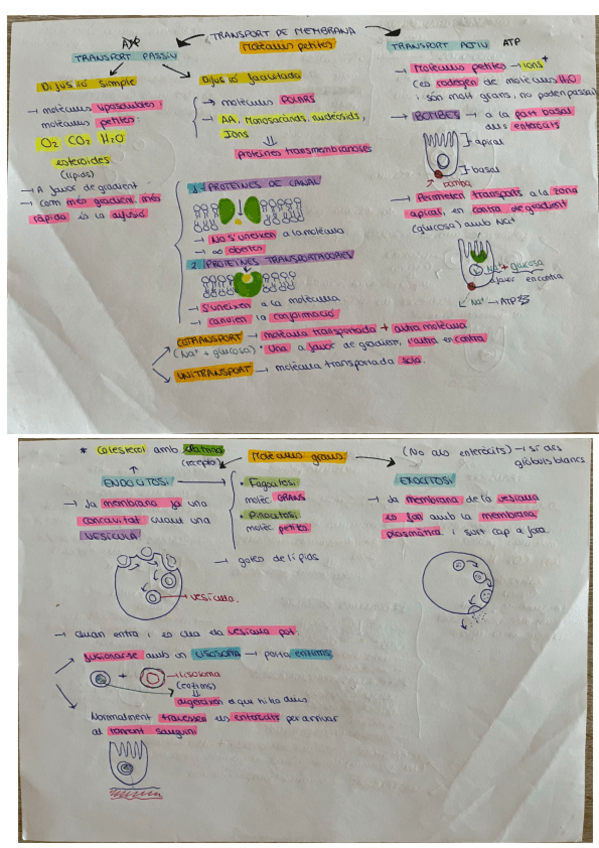 TRANSPORT DE MEMBRANA
Molècules petites
ATP
TRANSPORT PASSIU
Difusió simple
→ molècules liposolubles i
molècules petites:
O₂ CO₂ H₂O
esteroides
(lípids)
→ A favor de gradient
→ Com més gradient, més
ràpida és la difusió
Difusió facilitada
→ molècules POLARS
→ AA, Monosacàrids, nucleòsids,
Ions
proteïnes transmembranoses
1 - PROTEÏNES DE CANAL
→ No s'uneixen a la molècula
→ ∞ obertes
2 - PROTEÏNES TRANSPORTADORES
→ s'uneixen a la molècula
→ canvien la conformació
COTRANSPORT → molècula transportada + altra molècula
(Na⁺ + glucosa) • una a favor de gradient, l'altra en contra
UNITRANSPORT → molècula transportada sola.
TRANSPORT ACTIU ATP
→ Molècules petites → ions⁺
(es rodegen de molècules H₂O
i són molt grans, no poden passar)
→ BOMBES → a la part basal
dels enteròcits
apical
basal
bomba
→ Permeten transports a la zona
apical, en contra de gradient
(glucosa) amb Na⁺
Na⁺ + glucosa
a favor en contra
Na⁺ → ATP
* Colesterol amb clatrina
(receptor)
Molècules grans
ENDOCITOSI
→ La membrana fa una
concavitat creant una
VESÍCULA
• Fagocitosi:
molèc GRANS
• Pinocitosi:
molèc petites
→ gotes de lípids
vesícula.
(No als enteròcits) → sí als
glòbuls blancs
EXOCITOSI
→ La membrana de la vesícula
es fon amb la membrana
plasmàtica i surt cap a fora.
→ Quan entra i es crea la vesícula pot:
fusionarse amb un LISOSOMA → porta enzims
+
Lisosoma
(enzims)
digereixen el que hi ha dins
Normalment travessen els enteròcits per arrivar
al torrent sanguini